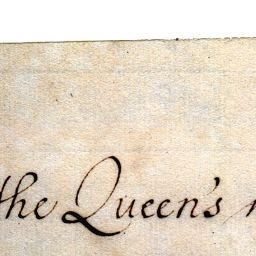 the Queen's